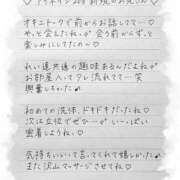 ♡アイネイン🏩新規のお兄さん♡
オキニトークで前からお話してて…
やっと会えたね♪会う前からずっと
楽しみにしてたの〜♪
れい達共通の趣味あるんだよね♪
お部屋入ってアレ流れてて…笑
興奮しちゃった♪
初めての洗体、ドキドキだったね
次は立位でぜひ…いーっぱい
密着しようね♪
気持ちいいって言ってくれて嬉しかった♪
また沢山マッサージさせてね